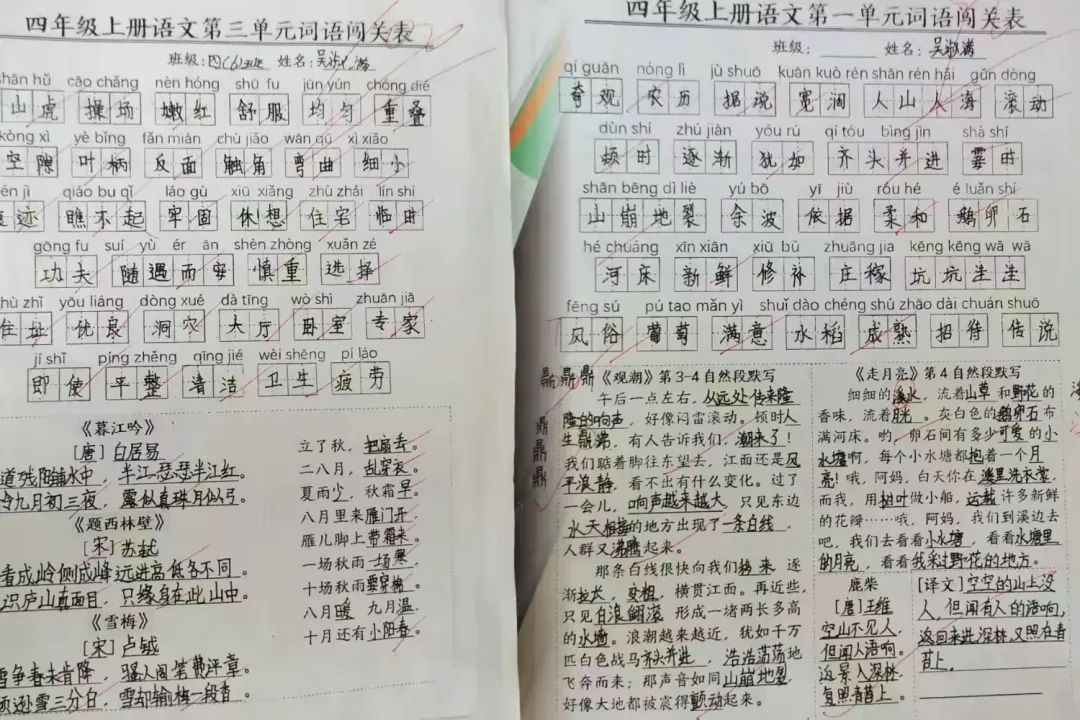 四年级上册语文第三单元词语闯关表
班级: 四(6)班 姓名:
shān hǔ cāo chǎng nèn hóng shū fu jūn yún chóng dié
山虎 操场 嫩红 舒服 均匀 重叠
kòng xì yè bǐng fǎn miàn chù jiǎo wān qū xì xiǎo
空隙 叶柄 反面 触角 弯曲 细小
hén jì qiáo bu qǐ láo gù xiū xiǎng zhù zhái lín shí
痕迹 瞧不起 牢固 休想 住宅 临
gōng fu suí yù ér ān shèn zhòng xuǎn zé
功夫 随遇而安 慎重 选择
zhù zhǐ yōu liáng dòng xué dà tīng wò shì zhuān jiā
住址 优良 洞穴 大厅 卧室 专家
jí shǐ píng zhěng qīng jié wèi shēng pí láo
即使 平整 清洁 卫生 疲劳
《暮江吟》
[唐] 白居易
道残阳铺水中, 半江瑟瑟半江红。
怜九月初三夜, 露似真珠月似弓。
《题西林壁》
[宋] 苏轼
看成岭侧成峰 远近高低各不同。
识庐山真面目, 只缘身在此山中。
《雪梅》
[宋] 卢钺
雪争春未肯降, 骚人阁笔费评章。
须逊雪三分白, 雪却输梅一段香。
立了秋, 把扇丢。
二八月, 乱穿衣。
夏雨少, 秋霜早。
八月里来雁门开,
雁儿脚上带霜来。
一场秋雨一场寒,
十场秋雨要穿棉。
八月暖 九月温,
十月还有小阳春。
四年级上册语文第一单元词语闯关表
班级: 姓名:
qí guān nóng lì jù shuō kuān kuò rén shān rén hǎi gǔn dòng
奇观 农历 据说 宽阔 人山人海 滚动
dùn shí zhú jiàn yóu rú qí tóu bìng jìn shà shí
顿时 逐渐 犹如 齐头并进 霎时
shān bēng dì liè yú bō yī jiù róu hé é luǎn shí
山崩地裂 余波 依据 柔和 鹅卵石
hé chuáng xīn xiān xiū bǔ zhuāng jia kēng kēng wā wā
河床 新鲜 修补 庄稼 坑坑洼洼
fēng sú pú tao mǎn yì shuǐ dào chéng shú zhāo dài chuán shuō
风俗 葡萄 满意 水稻 成熟 招待 传说
鼎鼎鼎《观潮》第3-4自然段默写
午后一点左右, 从远处传来隆
隆的响声, 好像闷雷滚动。顿时人
声鼎沸, 有人告诉我们, 潮来了!
我们踮着脚往东望去, 江面还是风
平浪静, 看不出有什么变化。过了
一会儿, 响声越来越大, 只见东边
水天相接的地方出现了一条白线,
人群又沸腾起来。
那条白线很快向我们移来 逐
渐拉大, 变粗, 横贯江面。再近些,
只见白浪翻滚 形成一堵两长多高
的水墙。浪潮越来越近, 犹如千万
匹白色战马齐头并进, 浩浩荡荡地
飞奔而来; 那声音如同山崩地裂,
好像大地都被震得颤动起来。
鼎
鼎
鼎
《走月亮》第4自然段默写
细细的溪水, 流着山草 和野花的
香味, 流着月光。灰白色的鹅卵石布
满河床。哟, 卵石间有多少可爱的小
水塘啊, 每个小水塘都抱着一个月
亮! 哦, 阿妈, 白天你在溪里洗衣裳,
而我, 用树叶做小船, 运载许多新鲜
的花瓣……哦, 阿妈, 我们到溪边去
吧, 我们去看看小水塘, 看看水塘里
的月亮, 看看我采过野花的地方。
鹿柴
[唐]王维
空山不见人,
但闻人语响。
返景入深林,
复照青苔上。
[译文]空空的山上没
人, 但闻有人的语响,
返回来进深林, 又照在青
苔上。